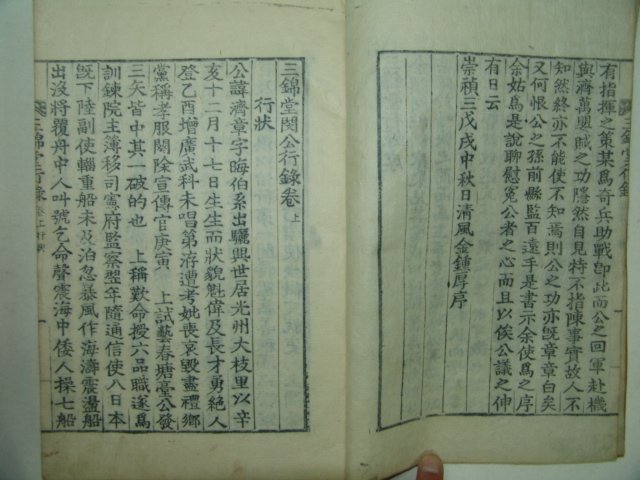 有指揮之策某爲奇兵助戰卽此而公之回軍赴機
與齊萬興賊之功隱然自見特不指陳事實故人不
知然終亦不能使不知焉則公之功亦旣章章白矣
又何恨公之孫前縣監百遠手是書示余使爲之序
余姑爲是說聊慰寃公者之心而且以俟公議之伸
有日云
崇禎三戊戌中秋日淸風金鍾厚序
三錦堂閔公行錄卷上
行狀
公諱濟章字晦伯系出驪興世居光州大枝里以辛
亥十二月十七日生生而狀貌魁偉及長才勇絶人
登乙酉增廣武科未唱第洊遭考妣喪哀毁盡禮鄕
黨稱孝服闋除宣傳官庚寅 上試藝春塘臺公發
三矢皆中其一破的也 上稱歎命授六品職遂爲
訓鍊院主簿移司憲府監察翌年隨通信使入日本
旣下陸副使輜重船未及泊忽暴風作海濤震盪船
出沒將覆舟中人叫號乞命聲震海中倭人操七船
三錦堂行錄 卷上 行狀 一